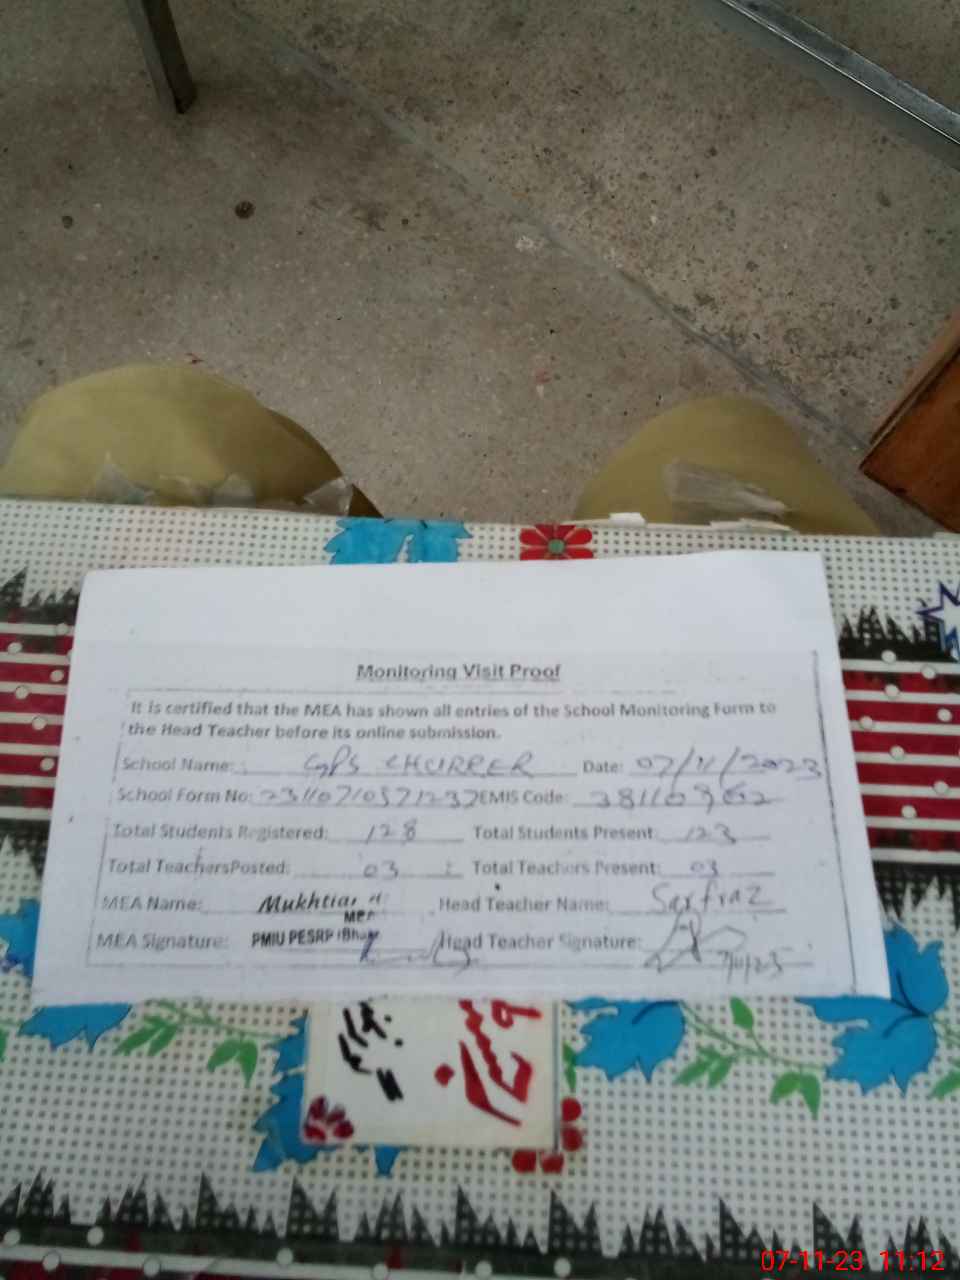 Monitoring Visit Proof
It is certified that the MEA has shown all entries of the School Monitoring Form to
the Head Teacher before its online submission.
School Name: GPS CHURPER Date: 07/11/2023
School Form No: EMIS Code:
Total Students Registered: 128 Total Students Present: 123
Total TeachersPosted: 03 Total Teachers Present: 03
MEA Name: Mukhtiar Head Teacher Name: Sarfraz
MEA
MEA Signature: PMIU PESRP Head Teacher Signature:
07-11-23 11:12